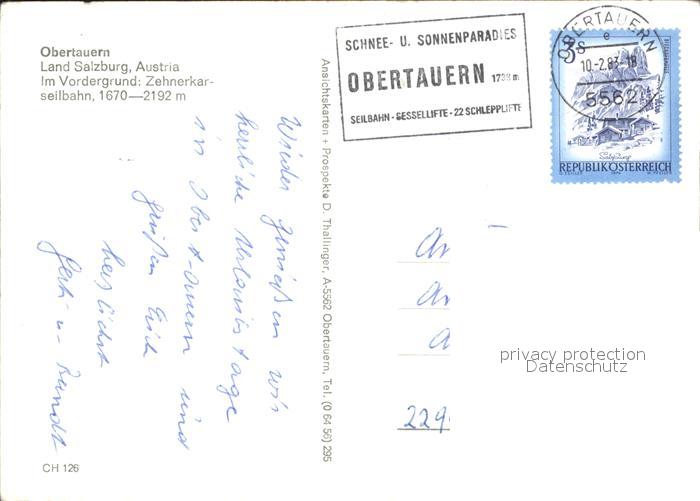 Obertauern
Land Salzburg, Austria
Im Vordergrund: Zehnerkar-
seilbahn, 1670—2192 m
SCHNEE- U. SONNENPARADIES
OBERTAUERN 1738 m
SEILBAHN - SESSELLIFTE - 22 SCHLEPPLIFTE
OBERTAUERN
e
10.-2.83-18
5562
3S
Salzburg
REPUBLIK ÖSTERREICH
Ansichtskarten + Prospekte D. Thallinger, A-5562 Obertauern, Tel. (0 64 56) 295
Wieder genießen wir
herrliche Urlaubstage
in Obertauern und
grüßen Euch
herzlichst
Gerti u.
An
An
A
229
privacy protection
Datenschutz
CH 126